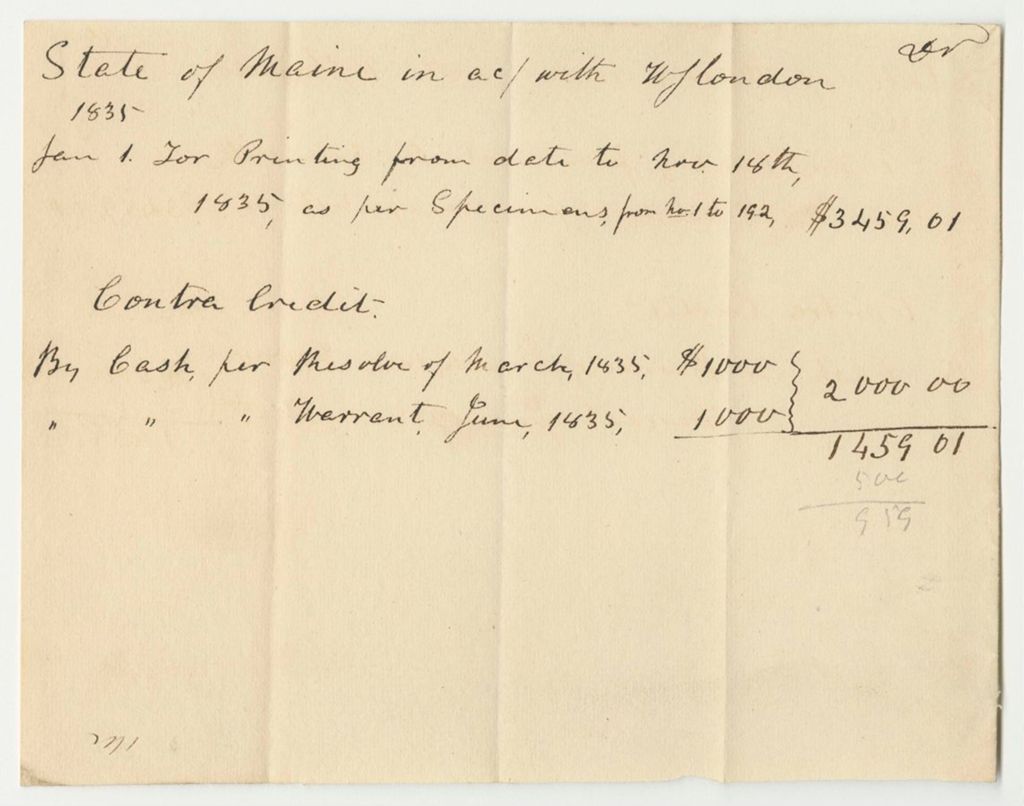 State of Maine in ac/ with W J Condon Dr
1835
Jan 1. For Printing from date to Nov. 18th,
1835, as per Specimens, from No. 1 to 192, $3459,01
Contra Credit.
By Cash, per Resolve of March, 1835, $1000
2000 00
" " " Warrant, June, 1835, 1000
1459 01
500
959